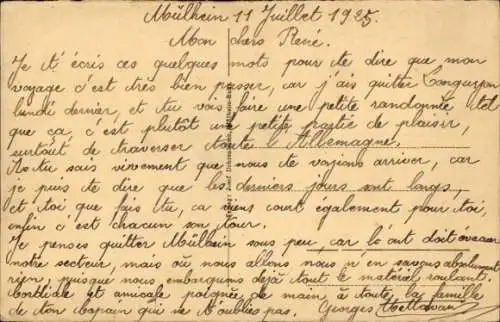 Mülhein 11 Juillet 1925.
Mon chers René.
Je t'écris ces quelques mots pour te dire que mon
voyage c'est très bien passer, car j'ais quitter Longuyon
lundi dernier, et tu vois faire une petite randonnée tel
que ça, c'est plutôt une petite partie de plaisir,
surtout de traverser toute l'Allemagne.
As tu sais vivement que nous te voyions arriver, car
je puis te dire que les derniers jours sont longs,
et toi que fais tu, ca viens court également pour toi,
enfin c'est chacun son tour.
Je penses quitter Mülhein sous peu, car l'ont doit
notre secteur, mais où nous allons nous n'en savons absolument
rien, puisque nous embarquons déjà tout le matériel roulant.
Cordiale et amicale poignée de main, à toute la famille
de ton copain qui ne t'oublies pas. Georges